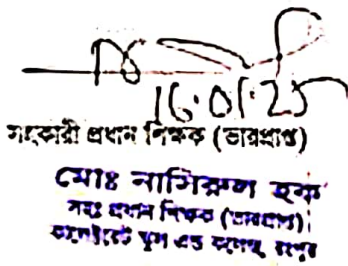 16.01.25
সহকারী প্রধান শিক্ষক (ভারপ্রাপ্ত)
মোঃ নাসিরুল হক
সহঃ প্রধান শিক্ষক (ভারপ্রাপ্ত)
স্কুল এন্ড কলেজ, রংপুর